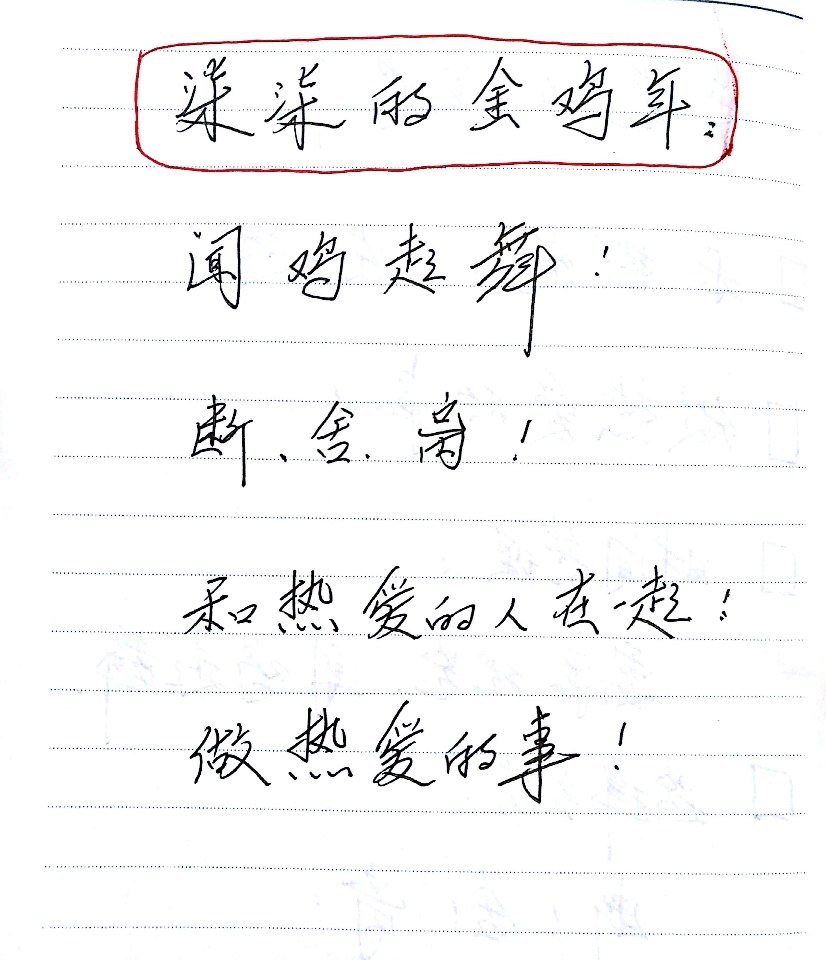 柒柒的金鸡年：
闻鸡起舞！
断、舍、离！
和热爱的人在一起！
做热爱的事！